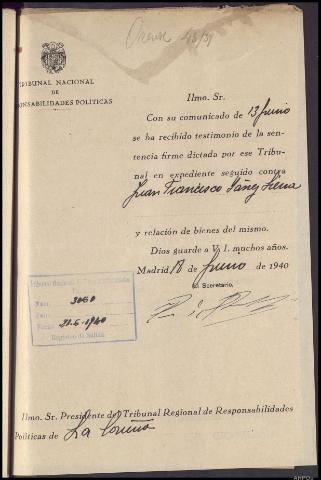 Orense 45/31
TRIBUNAL NACIONAL
DE
RESPONSABILIDADES POLITICAS
Ilmo. Sr.
Con su comunicado de 13 Junio
se ha recibido testimonio de la sen-
tencia firme dictada por ese Tribu-
nal en expediente seguido contra
Juan Francisco
y relación de bienes del mismo.
Dios guarde a V. I. muchos años.
Madrid 18 de Junio de 1940
El Secretario,
Tribunal Nacional de Responsabilidades
Núm. 3060
Fecha 21-6-1940
Registro de Salida
Ilmo. Sr. Presidente del Tribunal Regional de Responsabilidades
Políticas de La Coruña